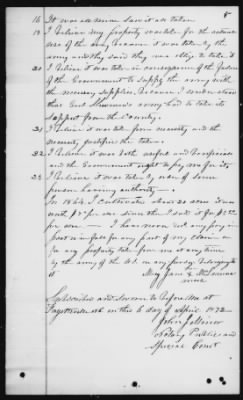 8
16 It was all mine I saw it all taken
19 I believe my property was taken for the actual
use of the army because it was taken by the
army and they said they was obliged to take it
20 I believe it was taken in consequence of the failure
of the Government to supply the army with
the necessary supplies because I understood
that Genl Sherman's army had to take its
support from the Country.
21 I believe it was taken from necessity and the
necessity justified the taken
22 I believe it was both useful and
and the Government ought to pay me for it.
23 I believe it was taken by order of some
person having authority.
In 1864 I cultivated about 20 acres
with
per acre I have never had any pay in
part or in full for any part of my claim or
for any property taken from me at any time
by the army of the U.S. or any person belonging to
it
Mary Jane
mark
Subscribed and Sworn to before me at
Fayetteville this 6 day of April 1872
John
Notary Public and
Special Comr